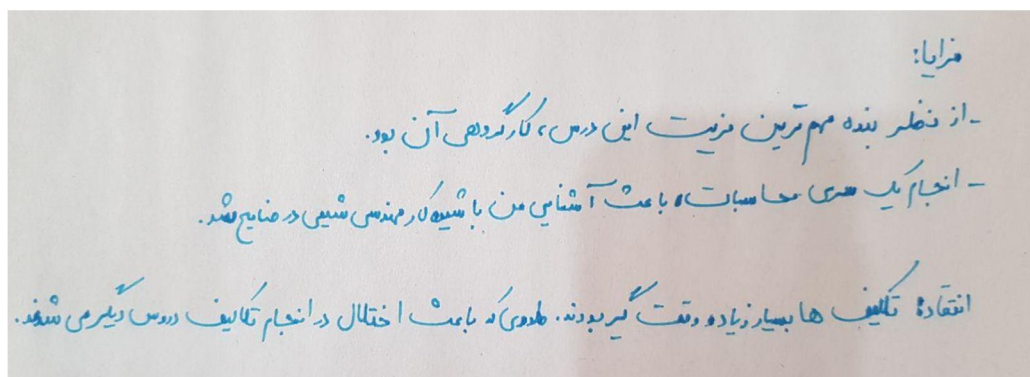 مزایا:
- از نظر بنده مهم ترین مزیت این درس، کار گروهی آن بود.
- انجام یک سری محاسبات، باعث آشنایی من با شیوه کار مهندسی شیمی در صنایع شد.
انتقاد: تکلیف ها بسیار زیاد و وقت گیر بودند. طوری که باعث اختلال در انجام تکالیف دروس دیگر می شدند.